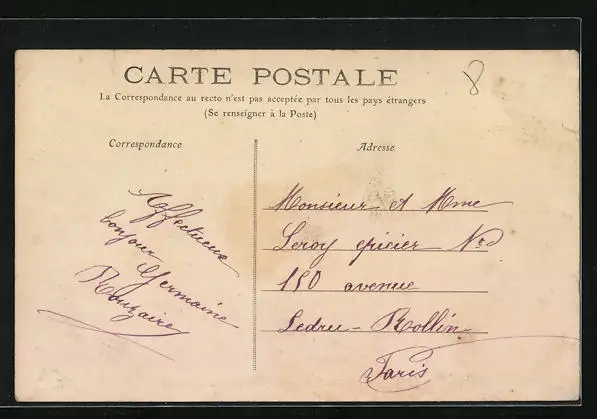 8
CARTE POSTALE
La Correspondance au recto n'est pas acceptée par tous les pays étrangers
(Se renseigner à la Poste)
Correspondance
Adresse
Affectueux
bonjour Germaine
Rouzaire
Monsieur et Mme
Leroy epicier No
150 avenue
Ledru-Rollin
Paris